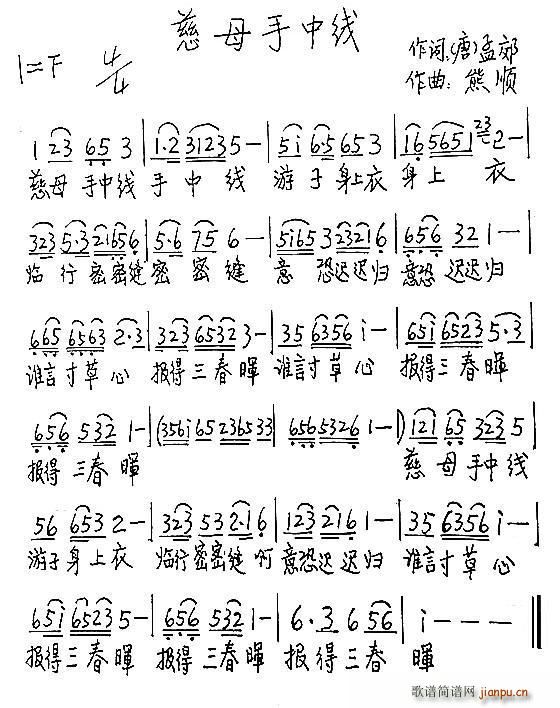 慈母手中线
1=F 4/4
作词:(唐)孟郊
作曲: 熊顺
1 23 65 3 | 1·2 3123 5 - | 5i 6·5 65 3 | 16 5651 23 2 - |
慈母 手中线 手 中 线 游 子 身上衣 身上 衣
323 5·3 2165 6 | 5·6 75 6 - | 5i65 3 2321 6 | 656 32 1 - |
临 行 密密缝 密 密 缝 意 恐迟迟归 意恐 迟迟归
665 6563 2·3 | 323 6532 3 - | 35 6356 i - | 65i 6523 5·3 |
谁言寸草心 报得三春暉 谁言寸草心 报得三春暉
656 532 1 - | (3561 65 236533 | 656 5326 1 - ) | 121 65 323 5 |
报得 三春 暉 慈 母 手中线
56 653 2 - | 323 53 2·1 6 | 123 216 1 - | 35 6356 i - |
游子 身上衣 临行密密缝啊 意恐迟迟归 谁言寸草心
65i 6523 5 - | 656 532 1 - | 6·3 6 56 | i - - - ‖
报得三春暉 报得三春暉 报得三春 暉
歌谱简谱网
jianpu.cn